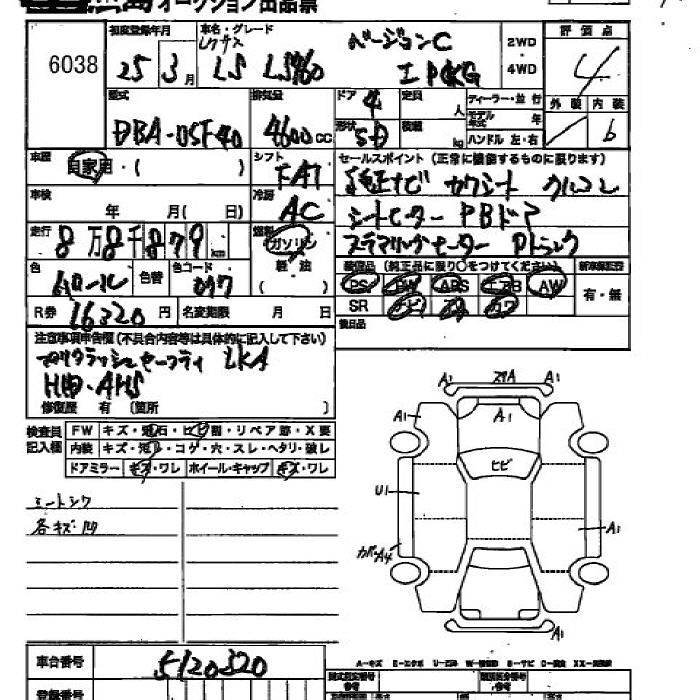 広島オークション出品票
6038
初度登録年月
25年 3月
車名・グレード
レクサス
LS LS460
バージョンC
I PKG
2WD
4WD
評価点
4
外装 内装
B
型式
DBA-USF40
排気量
4600 CC
ドア
4
形状
SD
定員
人
積載
kg
ディーラー・並行
モデル年式 年
ハンドル 左・右
車歴
自家用・( )
シフト
FAT
車検
年 月( 日)
冷房
AC
セールスポイント (正常に機能するものに限ります)
純正ナビ カワシート クルコン
シートヒーター PBドア
ステアリングヒーター Pトランク
走行
8万8千879km
燃料
ガソリン
軽・油
( )
色
色替
色コード
装備品 (純正品に限り○をつけてください)
新車保証書
PS PW ABS エアB AW
SR ナビ カワ
有・無
R券
16320円
名変期限 月 日
後日品
注意事項申告欄 (不具合内容等は具体的に記入して下さい)
プリクラッシュセーフティ LKA
HUD・AHS
修復歴 有 (箇所 )
検査員記入欄
FW キズ・飛石・ヒビ割・リペア跡・X要
内装 キズ・汚レ・コゲ・穴・スレ・ヘタリ・破レ
ドアミラー キズ・ワレ ホイール・キャップ キズ・ワレ
シートシワ
各キズ凹
A1 スリA A1
A1 A1 A1
ヒビ
U1
A1
カバーA4
A1
A-キズ E-エクボ U-凹み
車台番号
5120320
登録番号